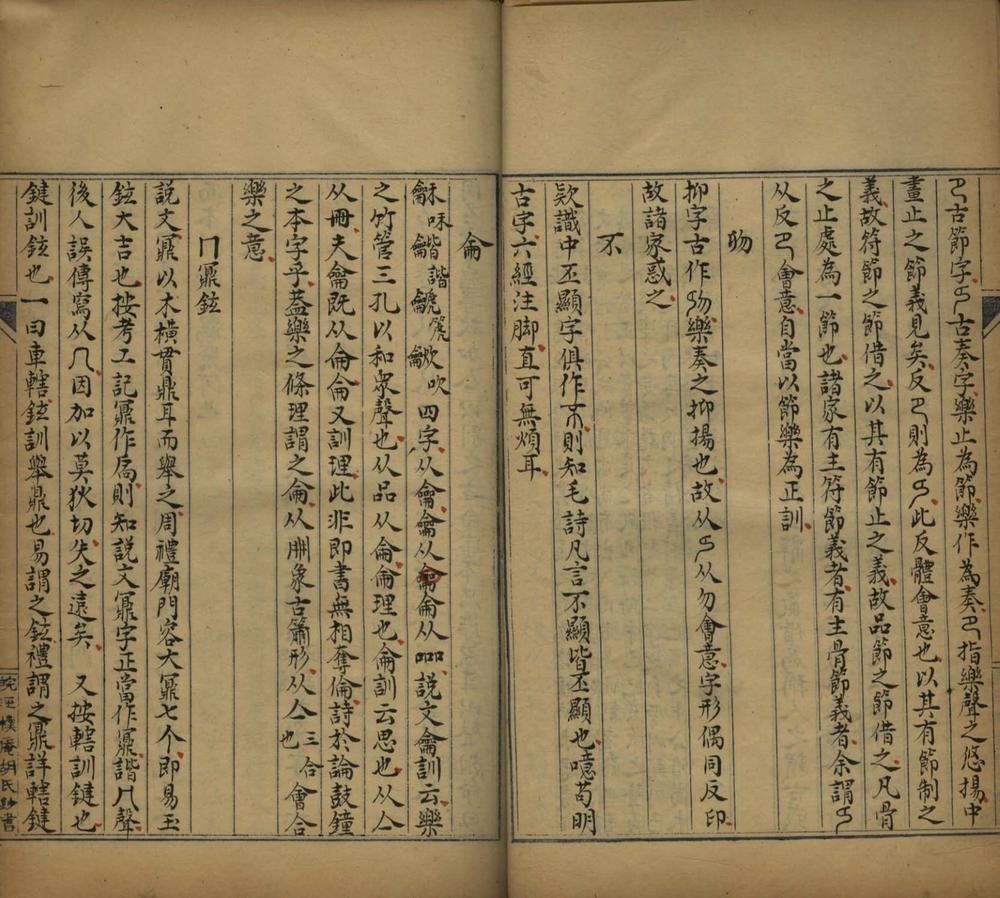 㔾古節字𠨎古奏字樂止為節樂作為奏㔾指樂聲之悠揚中
畫止之節義見矣反㔾則為𠨎此反體會意也以其有節制之
義故符節之節借之以其有節止之義故品節之節借之凡骨
之止處為一節也諸家有主符節義者有主骨節義者余謂𠨎
从反㔾會意自當以節樂為正訓
𠨎勿
抑字古作𠨎勿樂奏之抑揚也故从𠨎从勿會意字形偶同反印
故諸家惑之
不
欵識中丕顯字俱作不則知毛詩凡言不顯皆丕顯也噫苟明
古字六經注脚直可無煩耳
侖
龢咊龤諧䶵篪龡吹四字从龠龠从龠侖从吅說文龠訓云樂
之竹管三孔以和眾聲也从品从侖侖理也侖訓云思也从亼
从冊夫龠既从侖侖又訓理此非即書無相奪倫詩於論鼓鐘
之本字乎葢樂之條理謂之侖从𠕋象古簫形从亼三合也會合
樂之意
冂鼏鉉
說文鼏以木橫貫鼎耳而舉之周禮廟門容大鼏七个即易玉
鉉大吉也按考工記鼏作扃則知說文鼏字正當作鼏諧冂聲
後人誤傳寫从冂因加以莫狄切失之遠矣 又按轄訓鍵也
鍵訓鉉也一曰車轄鉉訓舉鼎也易謂之鉉禮謂之鼏詳轄鍵
樸庵胡氏鈔書